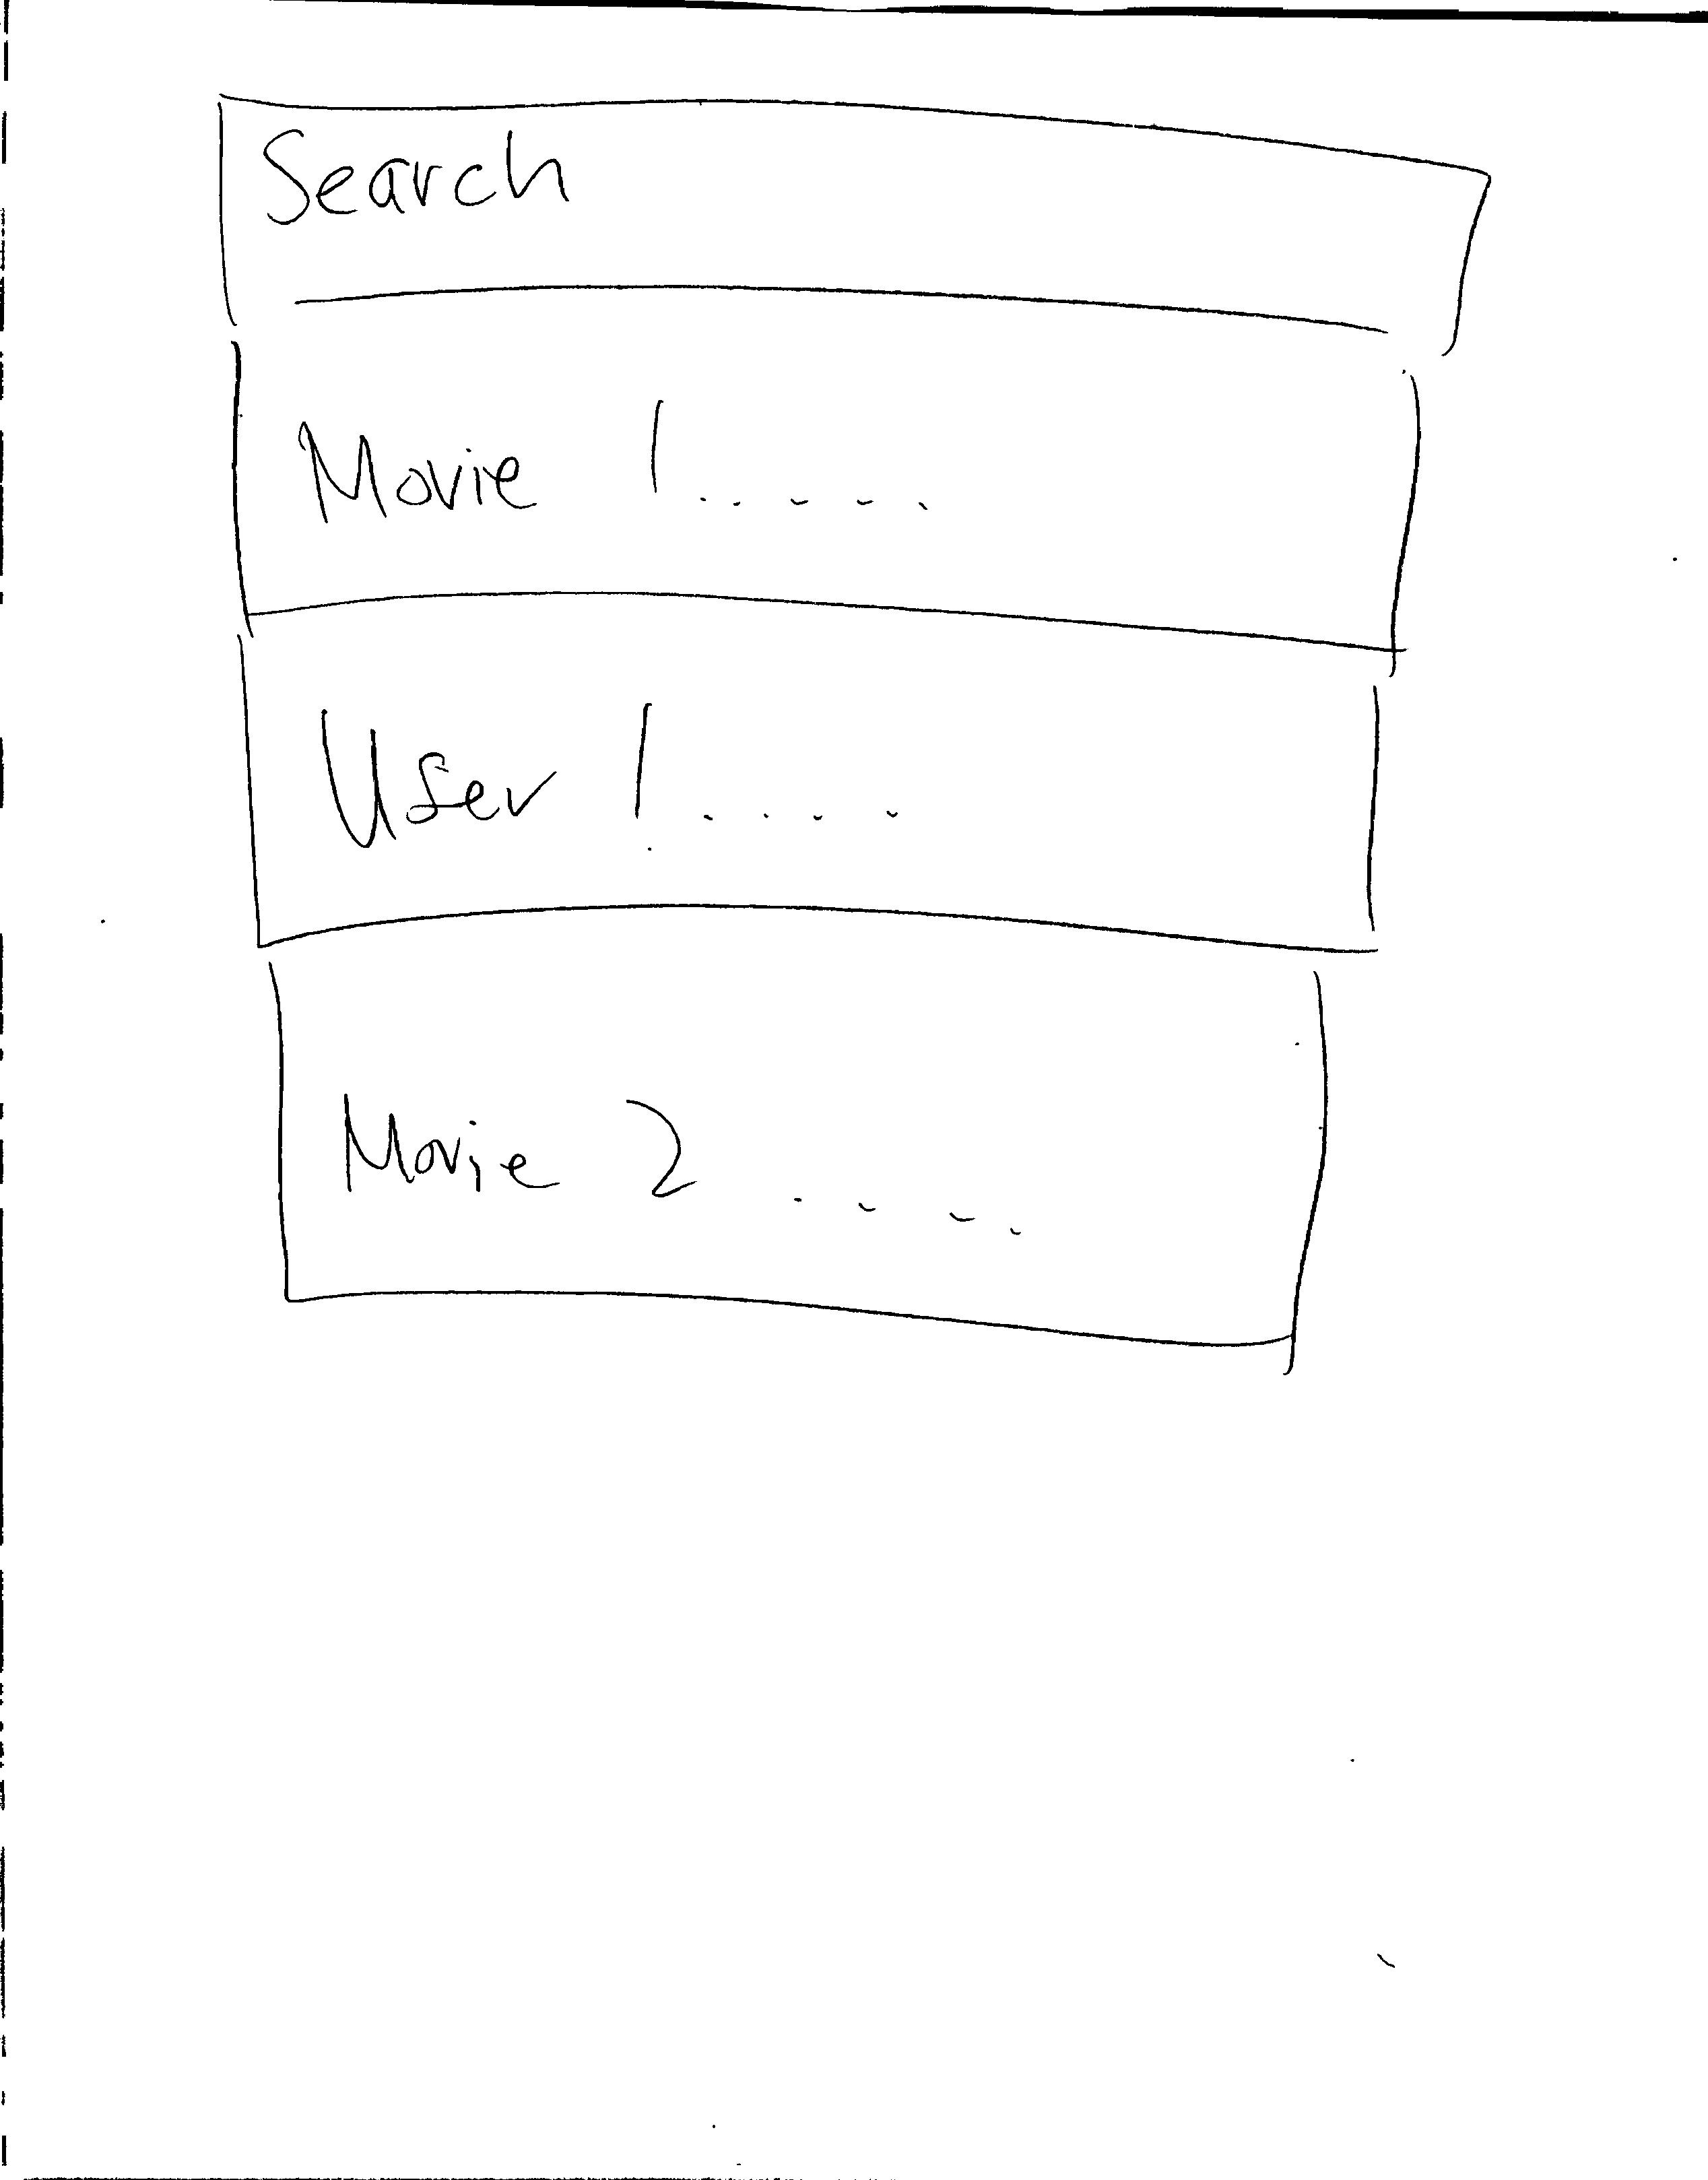 Search
Movie 1.....
User 1....
Movie 2....